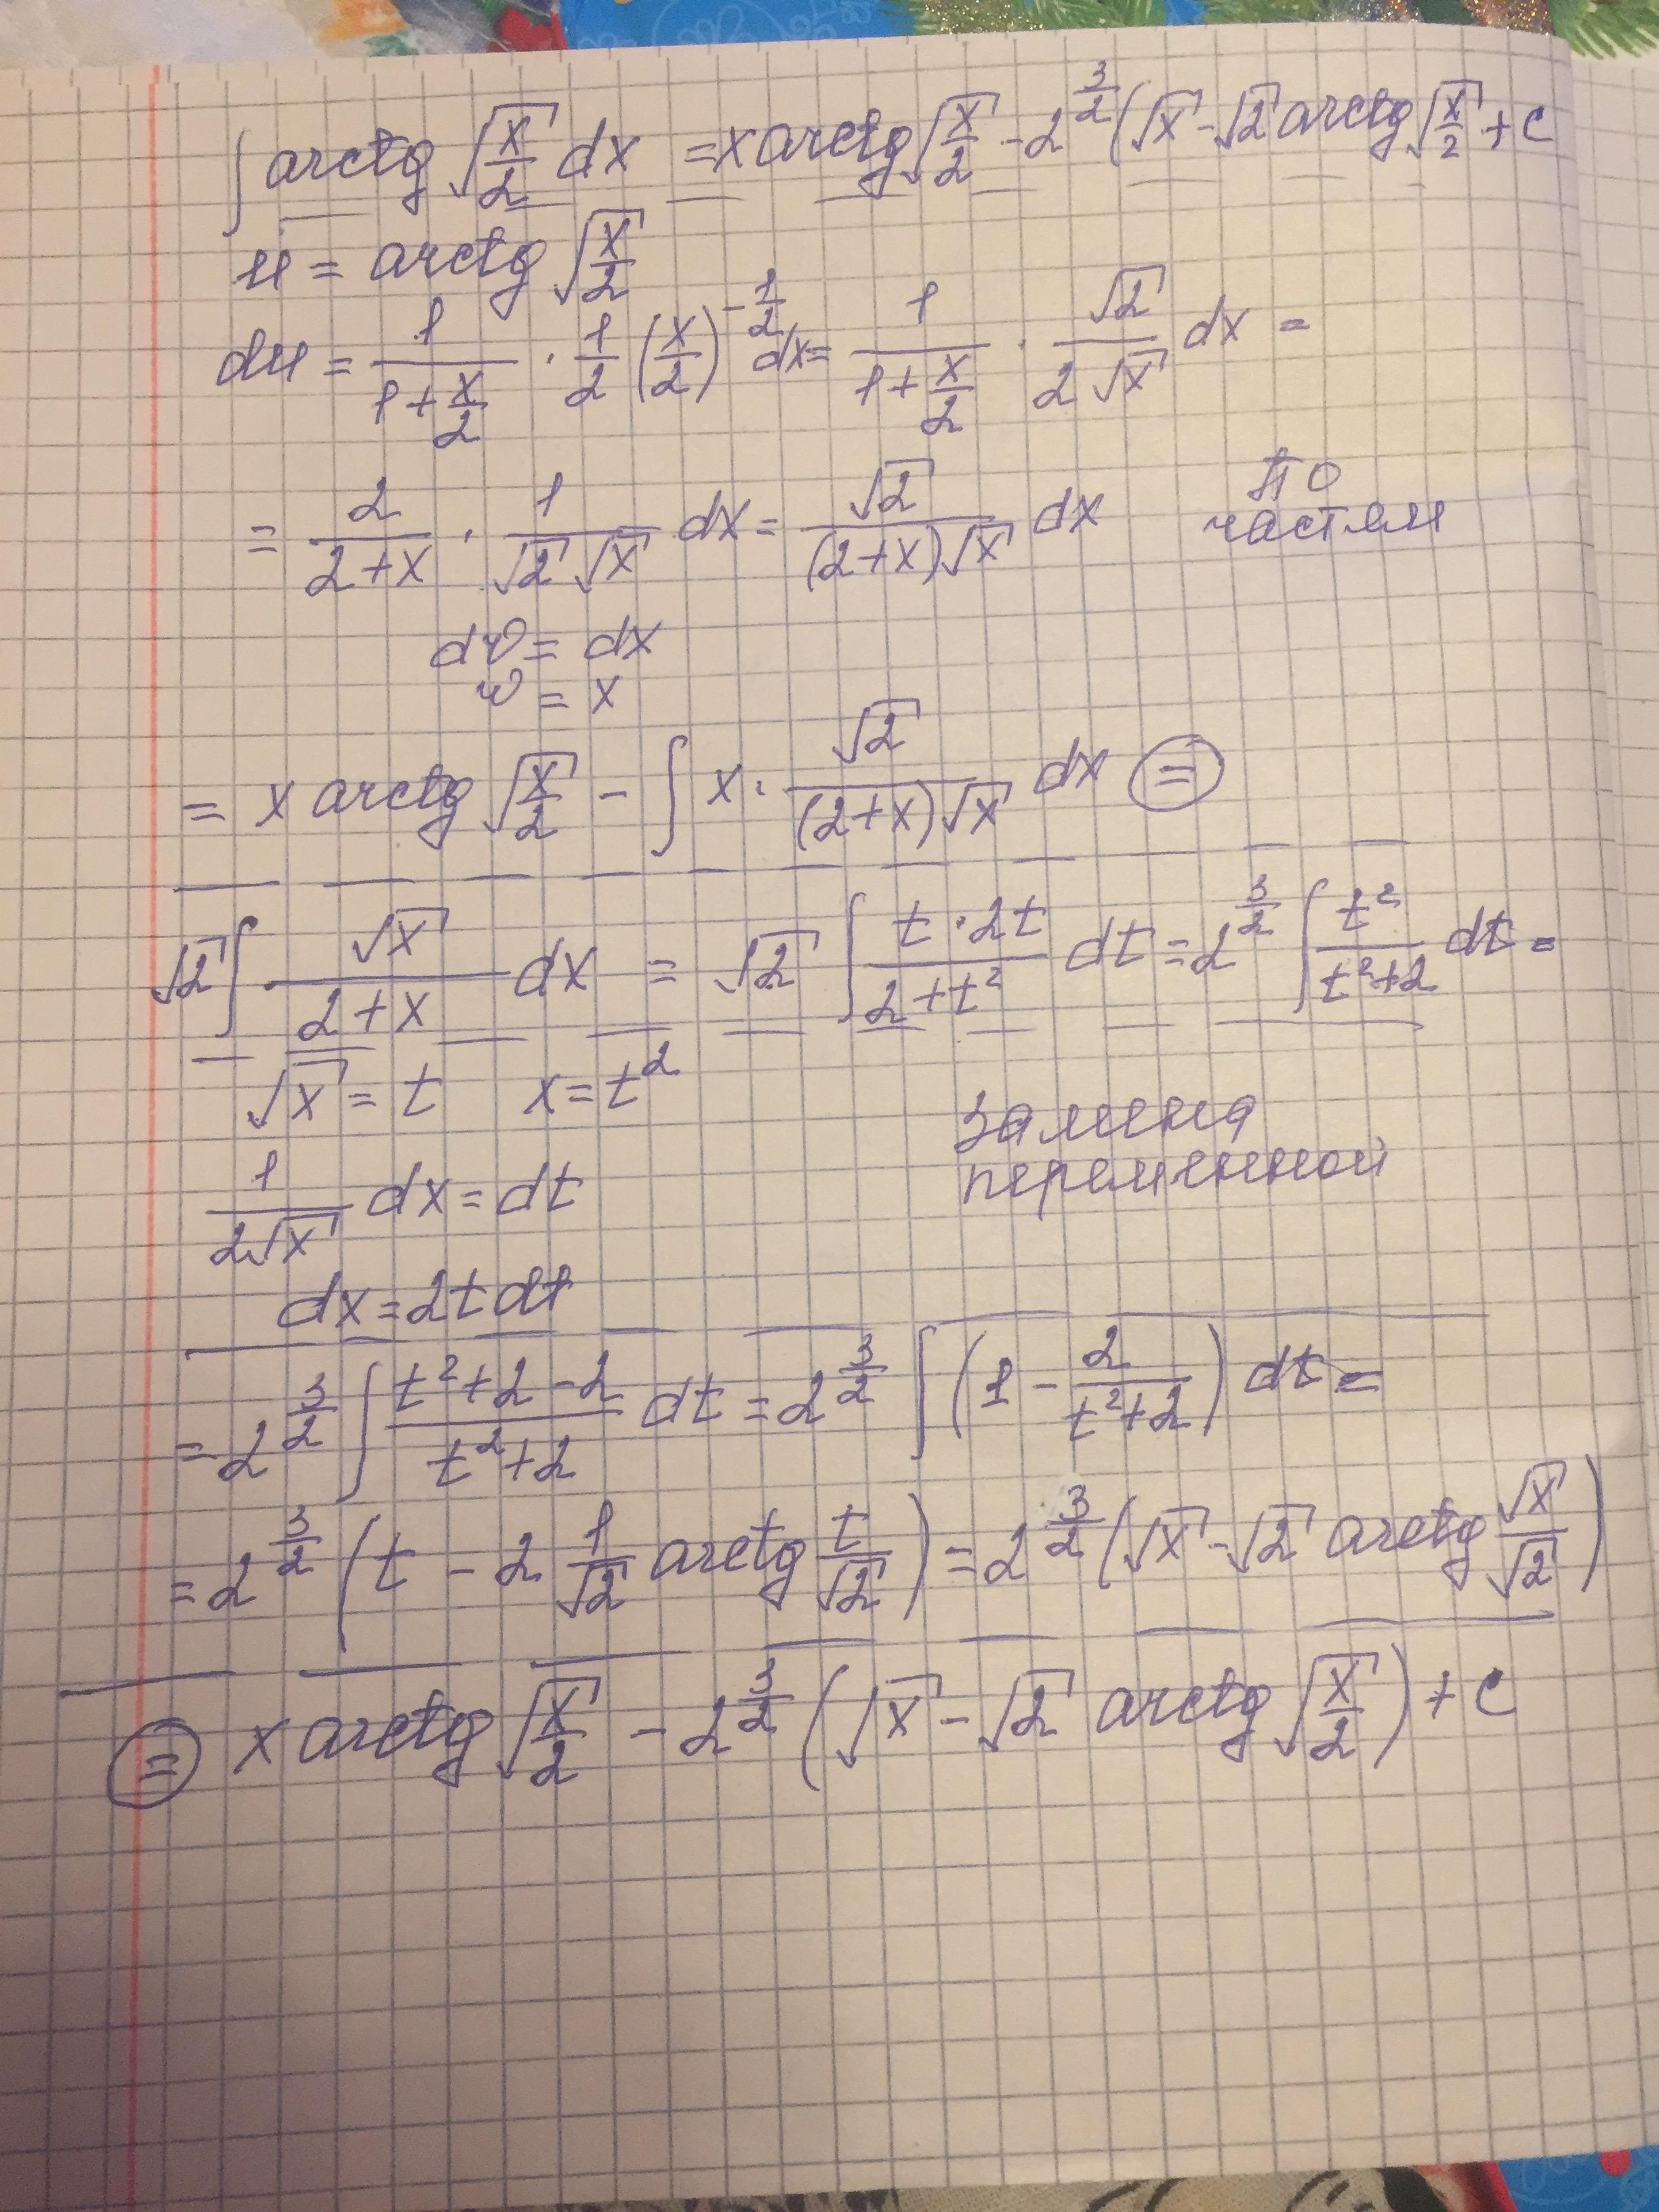 ∫ arctg √(x/2) dx = x arctg √(x/2) - 2^(3/2) (√x - √2 arctg √(x/2) + C
u = arctg √(x/2)
du = 1/(1+x/2) · 1/2 (x/2)^(-1/2) dx = 1/(1+x/2) · √2/(2√x) dx =
= 2/(2+x) · 1/(√2 √x) dx = √2/((2+x)√x) dx
по
частям
dv = dx
v = x
= x arctg √(x/2) - ∫ x · √2/((2+x)√x) dx ⊜
√2 ∫ √x/(2+x) dx = √2 ∫ (t·2t)/(2+t²) dt = 2^(3/2) ∫ t²/(t²+2) dt =
√x = t x = t²
замена
переменной
1/(2√x) dx = dt
dx = 2t dt
= 2^(3/2) ∫ (t²+2-2)/(t²+2) dt = 2^(3/2) ∫ (1 - 2/(t²+2)) dt =
= 2^(3/2) (t - 2 1/√2 arctg t/√2) = 2^(3/2) (√x - √2 arctg √x/√2)
⊜ x arctg √(x/2) - 2^(3/2) (√x - √2 arctg √(x/2)) + C